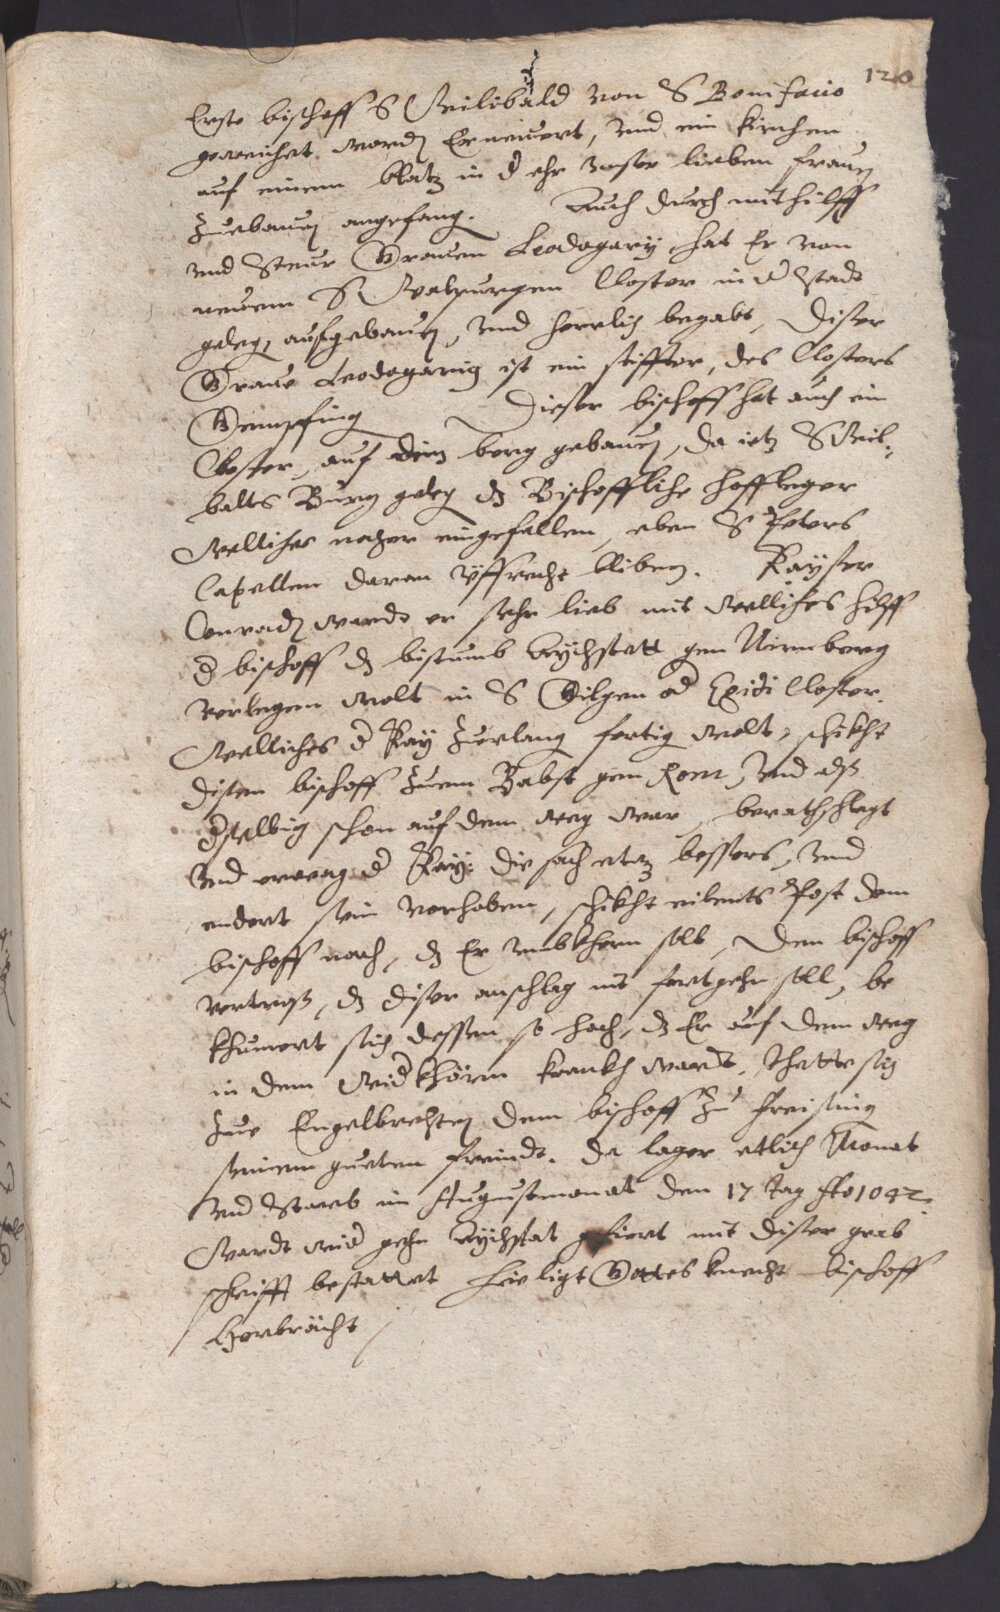 120
Erste bischoff S Wilibald von S Bonifacio
geweichet word Ernewert, vnd ein kirchen
auf einem blatz in d ehr vnser lieben frauen
Zuebauen angefang. Auch durch mithilff
vnd Steur Grauen Leodagary hat Er von
neuem S Walpurgen Closter in d Stadt
geleg aufgebauen, vnd herrlich begabt, diser
Graue Leodegarius ist ein stiffter, des Closters
Gempfing Dieser bischoff hat auch ein
Closter, auf dem berg gebauen, da ietz S Wil,
balts Burg geleg dz Bischoffliche hoffleger
Welliches nacher eingefallen, eben S Peters
Capellen daran vffrecht bliben. Kayser
Conrad wardt er sehr lieb mit Welliches hilff
d bischoff dz bistumb Eychstatt gen Nirmberg
verlegen wolt in S Gilgen od Egidi Closter.
Welliches d Kay Zuerlang fertig wolt, schikht
disem bischoff Zuem Babst gen Rom, vnd alß
dselbig schon auf dem weg war, berathschlagt
vnd erweg d Kay: die sach etwz bessers, vnd
endert sein vorhaben, schikht eilents Post dem
bischoff nach, dz Er vmbkhern soll, Den bischoff
vertroß, dz diser anschlag nit fortgehn soll, be
khumert sich dessen so hoch, dz Er auf dem weg
in dem Widkhörn krankh wardt, thette sich
Zue Engelbrechten dem bischoff Zu Freising
seinem gueten freindt. da lager etlich Monat
vnd Starb im Augustmonat den 17 tag Ao 1042.
Wardt wid gehn Eychstat gefiert mit diser grab
schrifft bestattet hie ligt Gottes knecht bischoff
Herbrächt